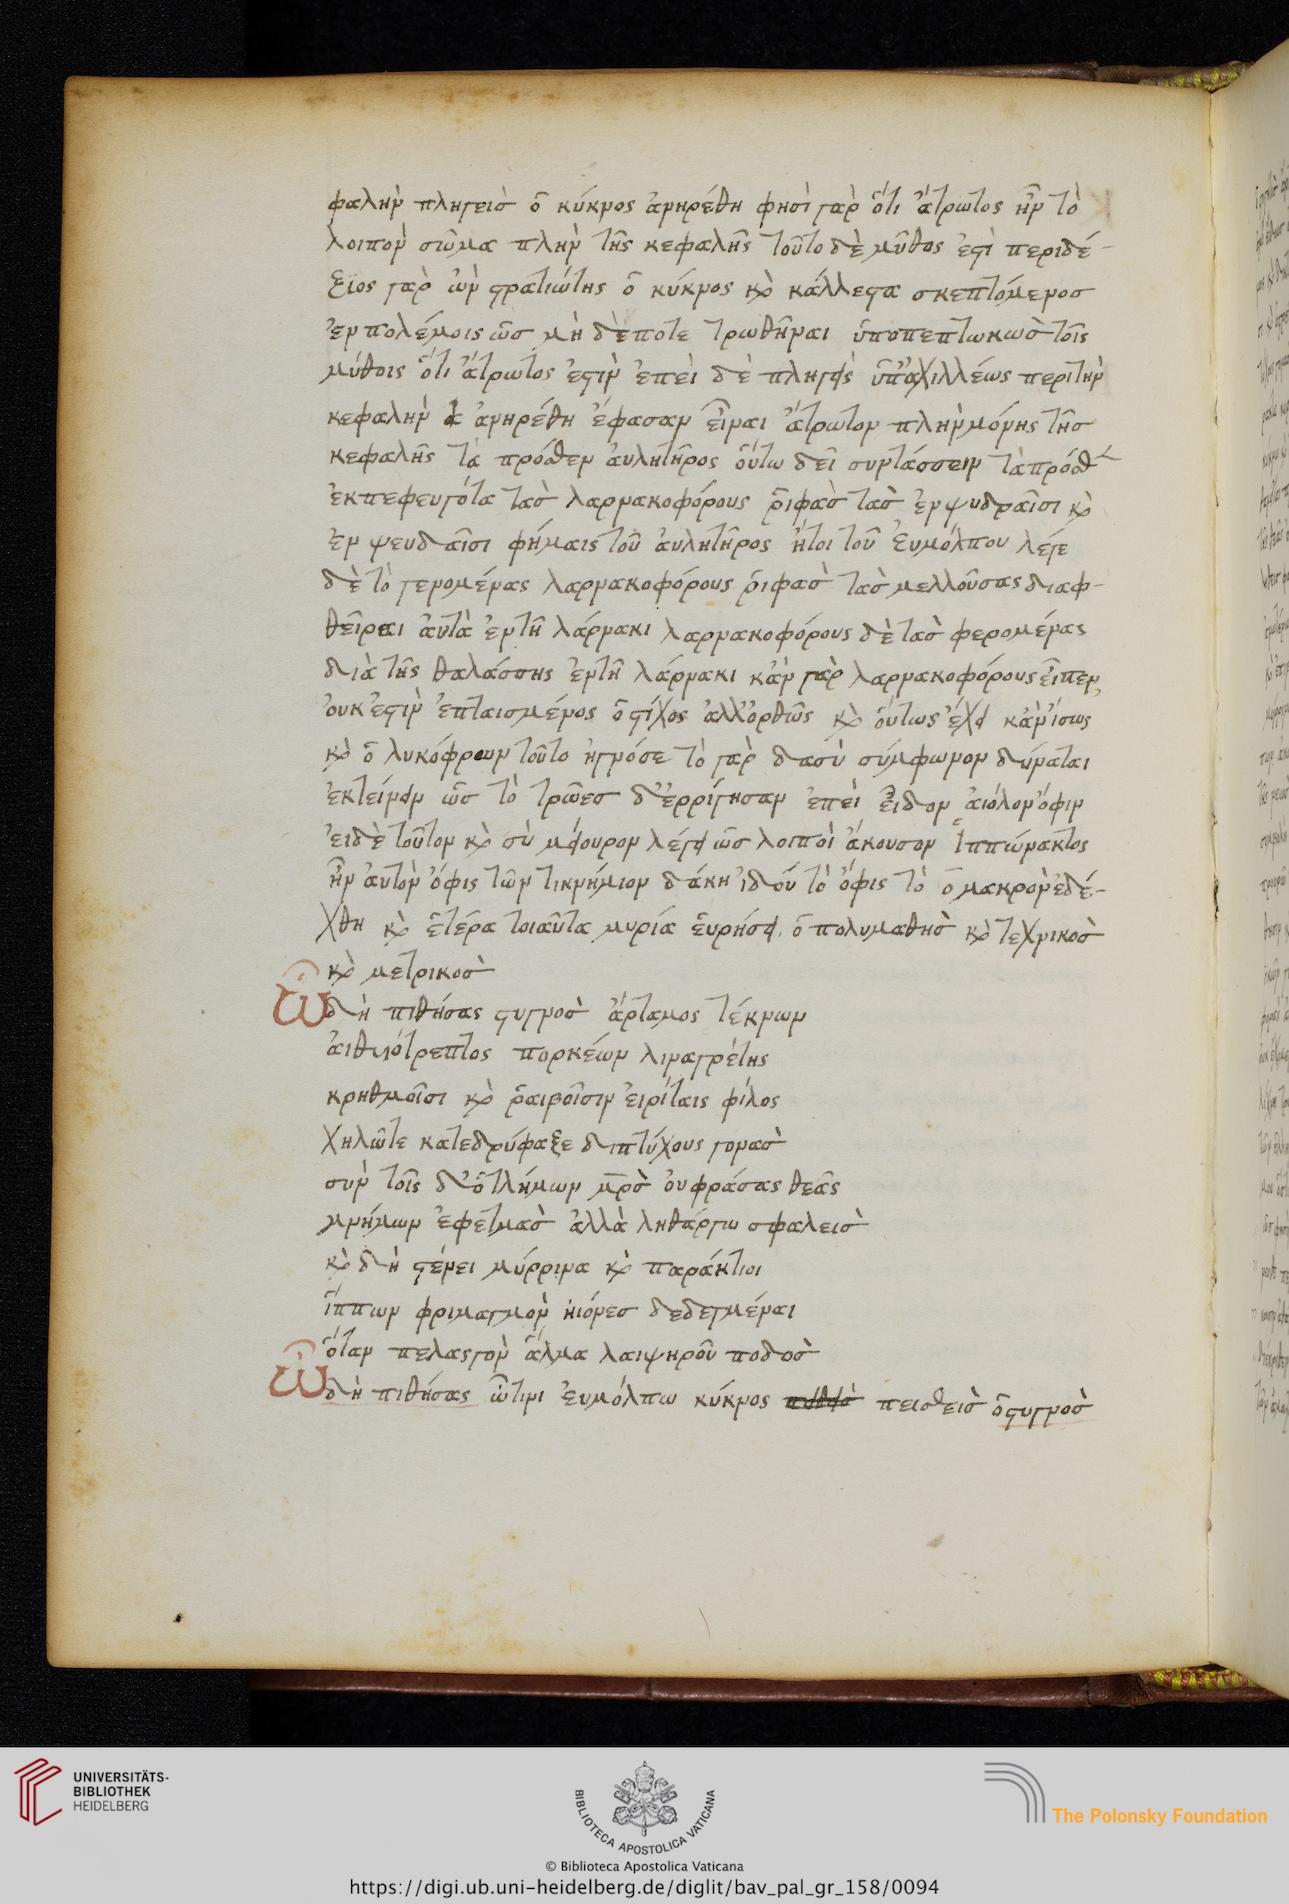 φαλὴν πληγεὶσ ὁ κύκνος ἀνηρέθη φησὶ γὰρ ὅτι ἄτρωτος ἦν τὸ
λοιπὸν σῶμα πλὴν τῆς κεφαλῆς τοῦτο δὲ μῦθος ἐστὶ περιδέ-
ξιος γὰρ ὢν στρατιώτης ὁ κύκνος κὸ κάλλεστα σκεπτόμενοσ
ἐν πολέμοις ὡσ μὴ δέποτε τρωθῆναι ὑποπεπτωκὼσ τοῖς
μύθοις ὅτι ἄτρωτος ἐστὶν ἐπεὶ δὲ πληγεὶς ὑπ' ἀχιλλέως περὶ τὴν
κεφαλὴν ἀνηρέθη ἔφασαν εἶναι ἄτρωτον πλὴν μόνης τῆσ
κεφαλῆς τὰ πρόσθεν αὐλητῆρος οὕτω δεῖ συντάσσειν τὰ πρόσθ
ἐκπεφευγότα τὰσ λαρνακοφόρους ῥιφὰσ τὰσ ἐν ψυδραῖσι κὸ
ἐν ψευδαῖσι φήμαις τοῦ αὐλητῆρος ἤτοι τοῦ Εὐμόλπου λέγε
δὲ τὸ γενομένας λαρνακοφόρους ῥιφὰσ τὰσ μελλούσας διαφ-
θεῖραι αὐτὰ ἐν τῆ λάρνακι λαρνακοφόρους δὲ τὰσ φερομένας
διὰ τῆς θαλάσσης ἐν τῆ λάρνακι κἂν γὰρ λαρνακοφόρους εἶπεν,
οὐκ ἐστὶν ἐπταισμένος ὁ στίχος ἀλλ' ὀρθῶς κὸ οὕτως ἔχει κἂν ἴσως
κὸ ὁ λυκόφρων τοῦτο ἠγνόσε τὸ γὰρ δασὺ σύμφωνον δύναται
ἐκτείνειν ὡσ τὸ τρῶεσ δ' ἐρρίγησαν ἐπεὶ εἶδον αἰόλον ὄφιν
εἰ δὲ τοῦτον κὸ σὺ μείουρον λέγει ὡσ λοιποὶ ἄκουσον Ἱππώνακτος
ἢν αὐτὸν ὄφις τῶν τικνήμιον δάκη ἰδού τὸ ὄφις τὸ ο μακρὸν ἐδέ-
χθη κὸ ἕτερα τοιαῦτα μυρία εὑρήσει. ὁ πολυμαθὴσ κὸ τεχνικὸσ
κὸ μετρικὸσ
Ὧ δὴ πιθήσας στυγνὸσ ἄρταμος τέκνων
αἰθυιόθρεπτος πορκέων λιναγρέτης
κρηθμοῖσι κὸ ῥαιβοῖσιν εἰρίταις φίλος
χηλῶτε κατεδρύφαξε διπτύχους γονὰσ
σὺν τοῖς δ' ὁ τλήμων μρὸσ οὐ φράσας θεᾶς
μνήμων ἐφετμὰσ ἀλλὰ ληθάργω σφαλεὶσ
κὸ δὴ στένει μύρρινα κὸ παράκτιοι
ἵππων φριμαγμὸν ἠιόνεσ δεδεγμέναι
ὅταν πελασγὸν ἅλμα λαιψηροῦ ποδὸσ
Ὧ δὴ πιθήσας ὧτινι εὐμόλπω κύκνος πεισθεὶσ ὁ στυγνὸσ
UNIVERSITÄTS-
BIBLIOTHEK
HEIDELBERG
BIBLIOTECA APOSTOLICA VATICANA
The Polonsky Foundation
© Biblioteca Apostolica Vaticana
https://digi.ub.uni-heidelberg.de/diglit/bav_pal_gr_158/0094